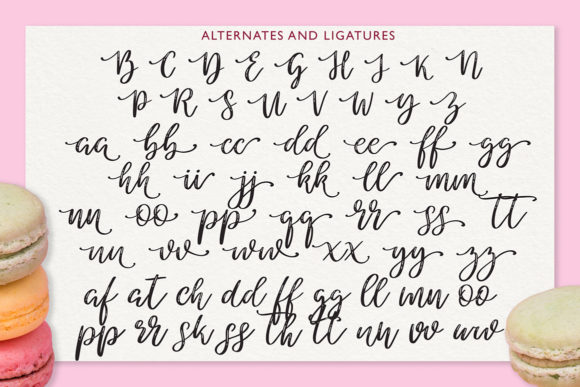 ALTERNATES AND LIGATURES
B C D E G H J K N
P R S U V W Y Z
aa bb cc dd ee ff gg
hh ii jj kk ll mm
nn oo pp qq rr ss tt
nn vv ww xx yy zz
af at ch dd ff gg ll mn oo
pp rr sk ss th tt nn vv ww